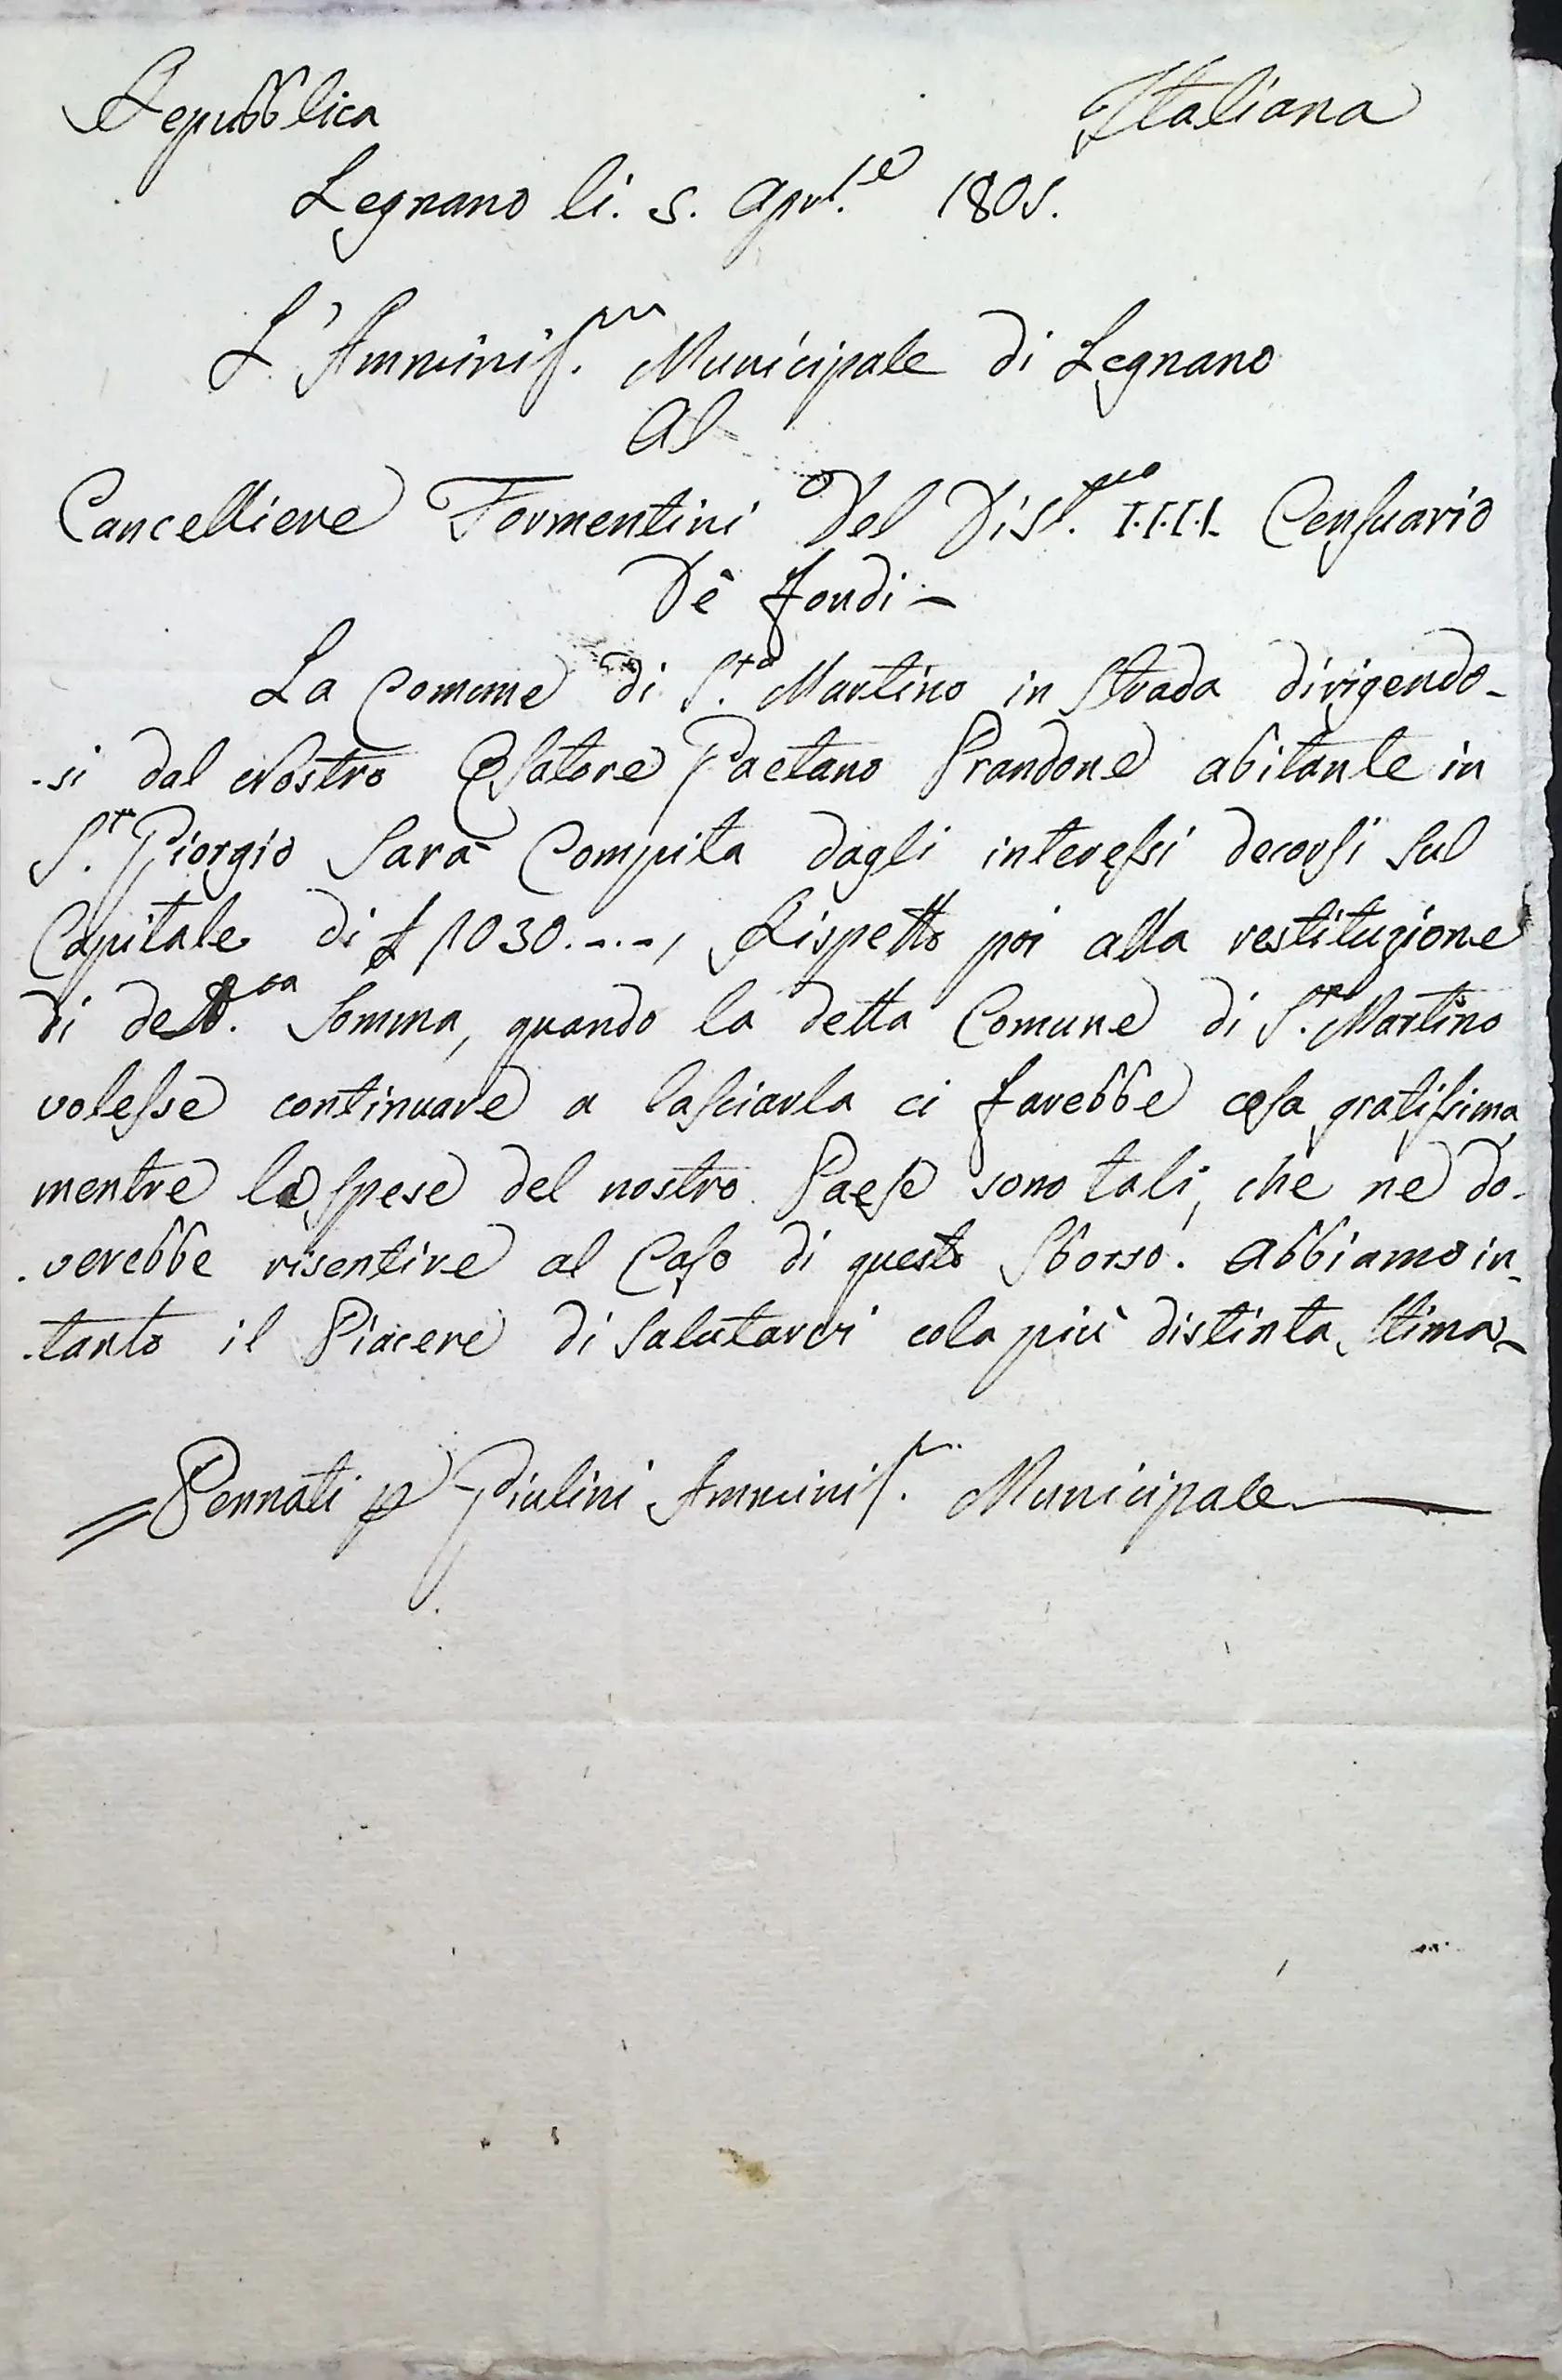 Repubblica Italiana
Legnano li. 5. Apr.le 1805.
L'Amminis.ne Municipale di Legnano
Al
Cancelliere Tormentini Del Dist.tto IIII. Censuario
De fondi -
La Comune di S.to Martino in Strada dirigendo-
-si dal Nostro Esatore Gaetano Prandone abitante in
S.n Giorgio Sarà Compita dagli interessi decorsi sul
Capitale di £ 1030.-.-, Rispetto poi alla restituzione
di dett.ta Somma, quando la detta Comune di S.n Martino
volesse continuare a lasciarla ci farebbe cosa gratissima
mentre le spese del nostro Paese sono tali, che ne do-
-verebbe risentire al Caso di questo Sborso. Abbiamo in-
-tanto il Piacere di Salutarvi cola più distinta stima-
=Pennati p Giulini Amminis.r Municipale